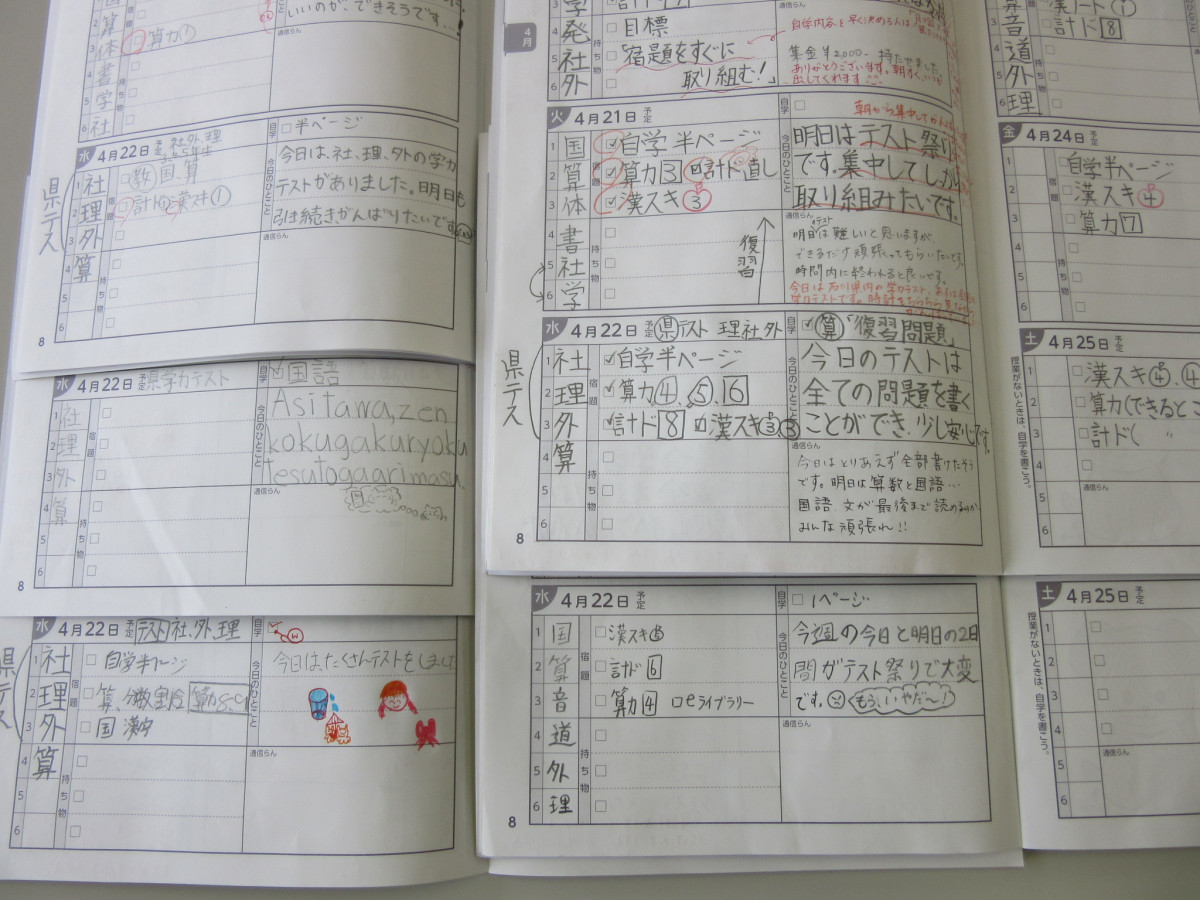 いいのが、できそうです…!
算力①
水 4月22日 予定 社・外・理
自学 半ページ
社
理
外
算
県テス
今日は、社、理、外の学力
テストがありました。明日も
引き続きがんばりたいです
今日のひとこと
通信らん
宿題
持ち物
8
水 4月22日 予定 県学力テスト
自学 国語
社
理
外
算
Asitawa,zen
kokugakuryoku
tesutogaarimasu.
今日のひとこと
通信らん
宿題
持ち物
8
水 4月22日 予定 テスト 社、外、理
自学
社
理
外
算
県テス
自学半ページ
国 漢字
今日はたくさんテストをしました
今日のひとこと
通信らん
宿題
持ち物
8
4月
学
発
社
外
目標
「宿題をすぐに
取り組む!」
集金¥2000- 持たせました
ありがとうございます。
火 4月21日 予定
国
算
体
書
社
学
自学 半ページ
算力③ 計ド直し
漢スキ③
復習
明日はテスト祭り
です。集中してしっか
取り組みたいです。
明日は難しいと思いますが、
できるだけ頑張ってもらいたいです。
時間内に終われると良いです。
水 4月22日 予定 県テスト 理社外
自学 算「復習問題」
社
理
外
算
県テス
自学半ページ
算力④、⑤、⑥
計ド⑧ 漢スキ
今日のテストは
全ての問題を書く
ことができ、少し安心です。
今日はとりあえず全部書けたそう
です。明日は算数と国語…
国語、文が最後まで読めるのか…
みんな頑張れ!!
8
水 4月22日 予定
自学 1ページ
国
算
音
道
外
理
漢スキ
計ド⑥
算力④ eライブラリー
今週の今日と明日の2日
間がテスト祭りで大変
です。 もう、いやだ~!
今日のひとこと
通信らん
宿題
持ち物
8
音
道
外
理
漢ノート
計ド⑧
金 4月24日 予定
自学半ページ
漢スキ④
算力⑦
土 4月25日 予定
漢スキ④、④
算力(できるとこ
計ド(
授業がないときは、自学を書こう。
土 4月25日 予定
授業がないときは、自学を書こう。
通信らん